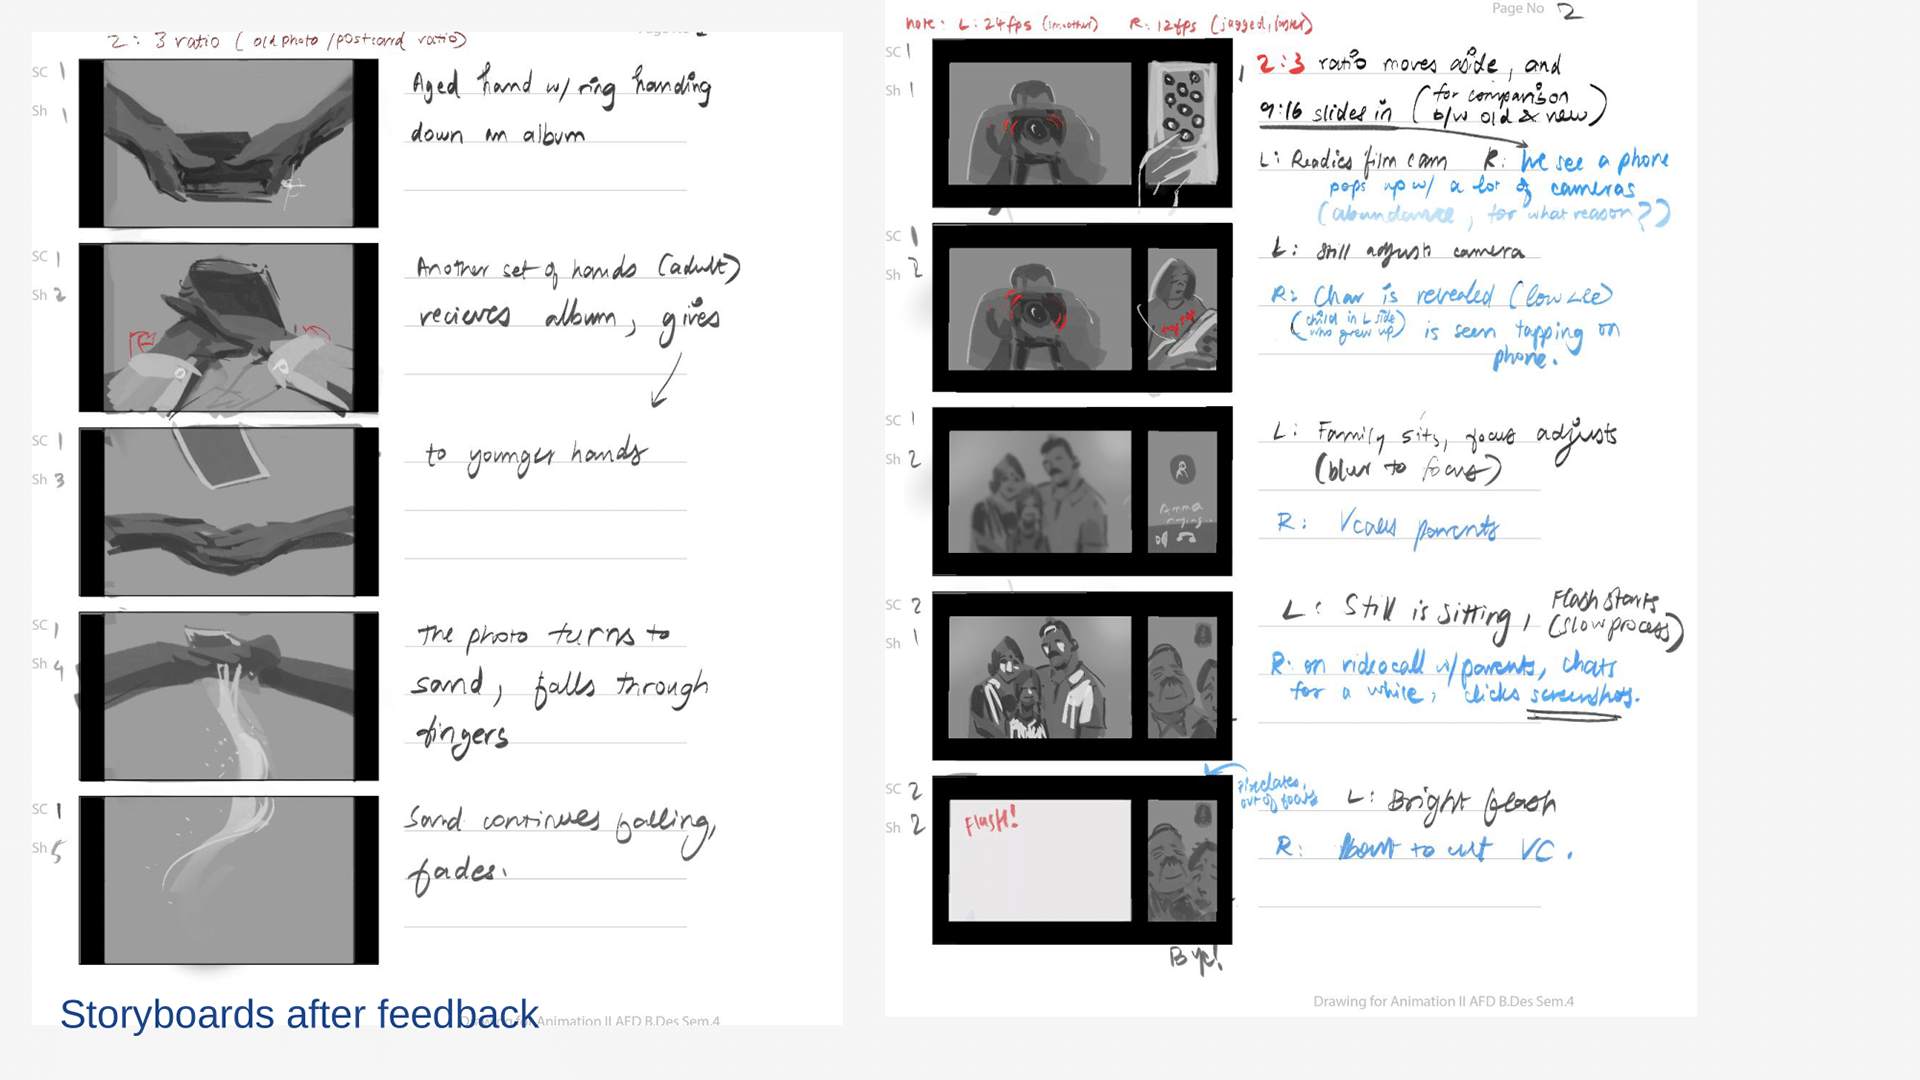 2:3 ratio (old photo/postcard ratio)
SC 1
Sh 1
Aged hand w/ ring handing
down an album
SC 1
Sh 2
Another set of hands (adult)
recieves album, gives
SC 1
Sh 3
to younger hands
SC 1
Sh 4
the photo turns to
sand, falls through
fingers
SC 1
Sh 5
Sand continues falling,
fades.
Storyboards after feedback
Drawing for Animation II AFD B.Des Sem.4
Page No 2
note: L: 24fps (smoother) R: 12fps (jagged, faster)
SC 1
Sh 1
2:3 ratio moves aside, and
9:16 slides in (for comparison
b/w old & new)
L: Readies film cam R: We see a phone
pops up w/ a lot of cameras
(abundance, for what reason?)
SC 1
Sh 2
tap tap
L: Still adjusts camera
R: Char is revealed (low Lee)
(child in L side
who grew up) is seen tapping on
phone.
SC 1
Sh 2
ringing...
L: Family sits, focus adjusts
(blur to focus)
R: Vcalls parents
SC 2
Sh 1
L: Still is sitting, Flash starts
(slow process)
R: on videocall w/ parents, chats
for a while, clicks screenshots.
SC 2
Sh 2
FLASH!
Pixelates,
out of focus
L: Bright flash
R: About to cut VC.
Bye!
Drawing for Animation II AFD B.Des Sem.4